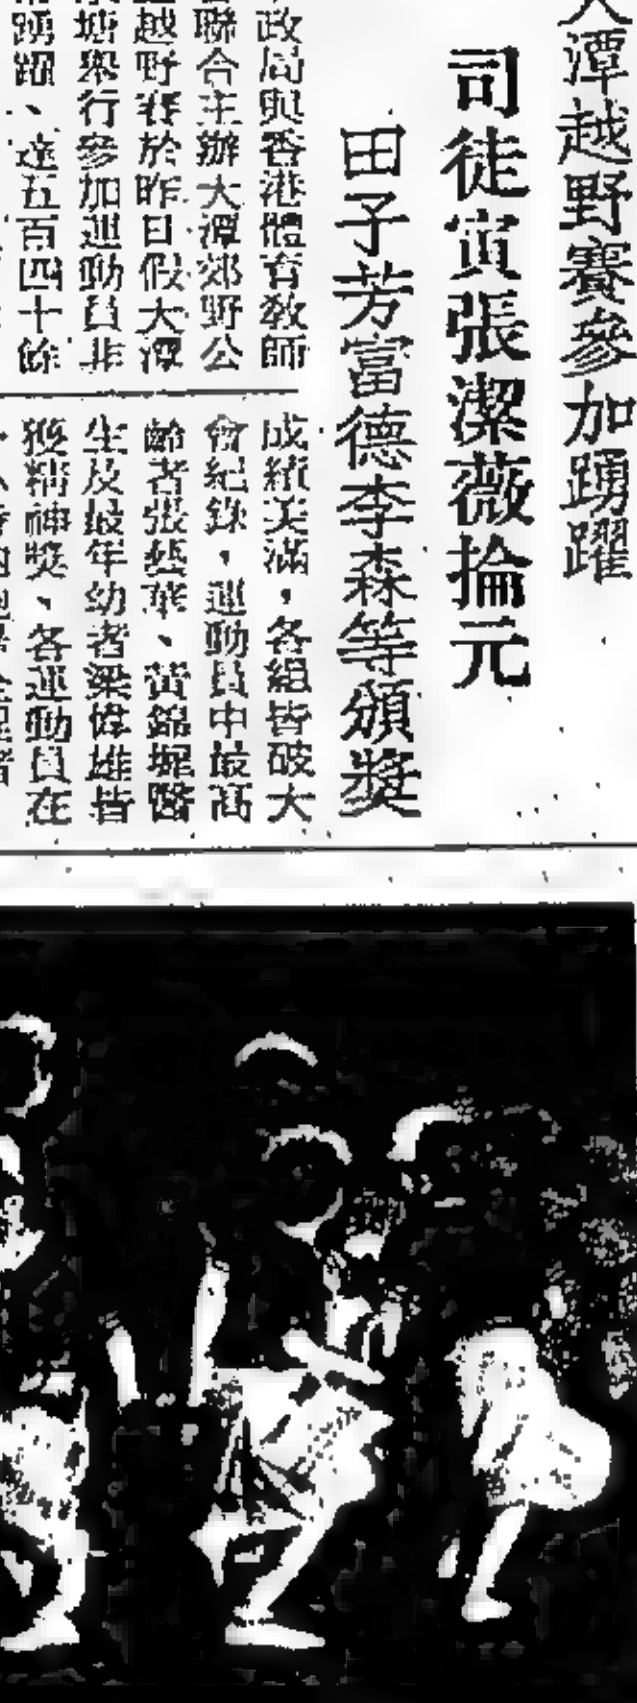 大潭越野賽參加踴躍
司徒寅張潔薇掄元
田子芳富德李森等頒獎
政局與香港體育教師
聯合主辦大潭郊野公
越野賽於昨日假大潭
塘舉行參加運動員非
踴躍、達五百四十餘
成績美滿，各組皆破大
會紀錄，運動員中最高
齡者張藝華、黃錦堀醫
生及最年幼者梁偉雄皆
獲精神獎、各運動員在